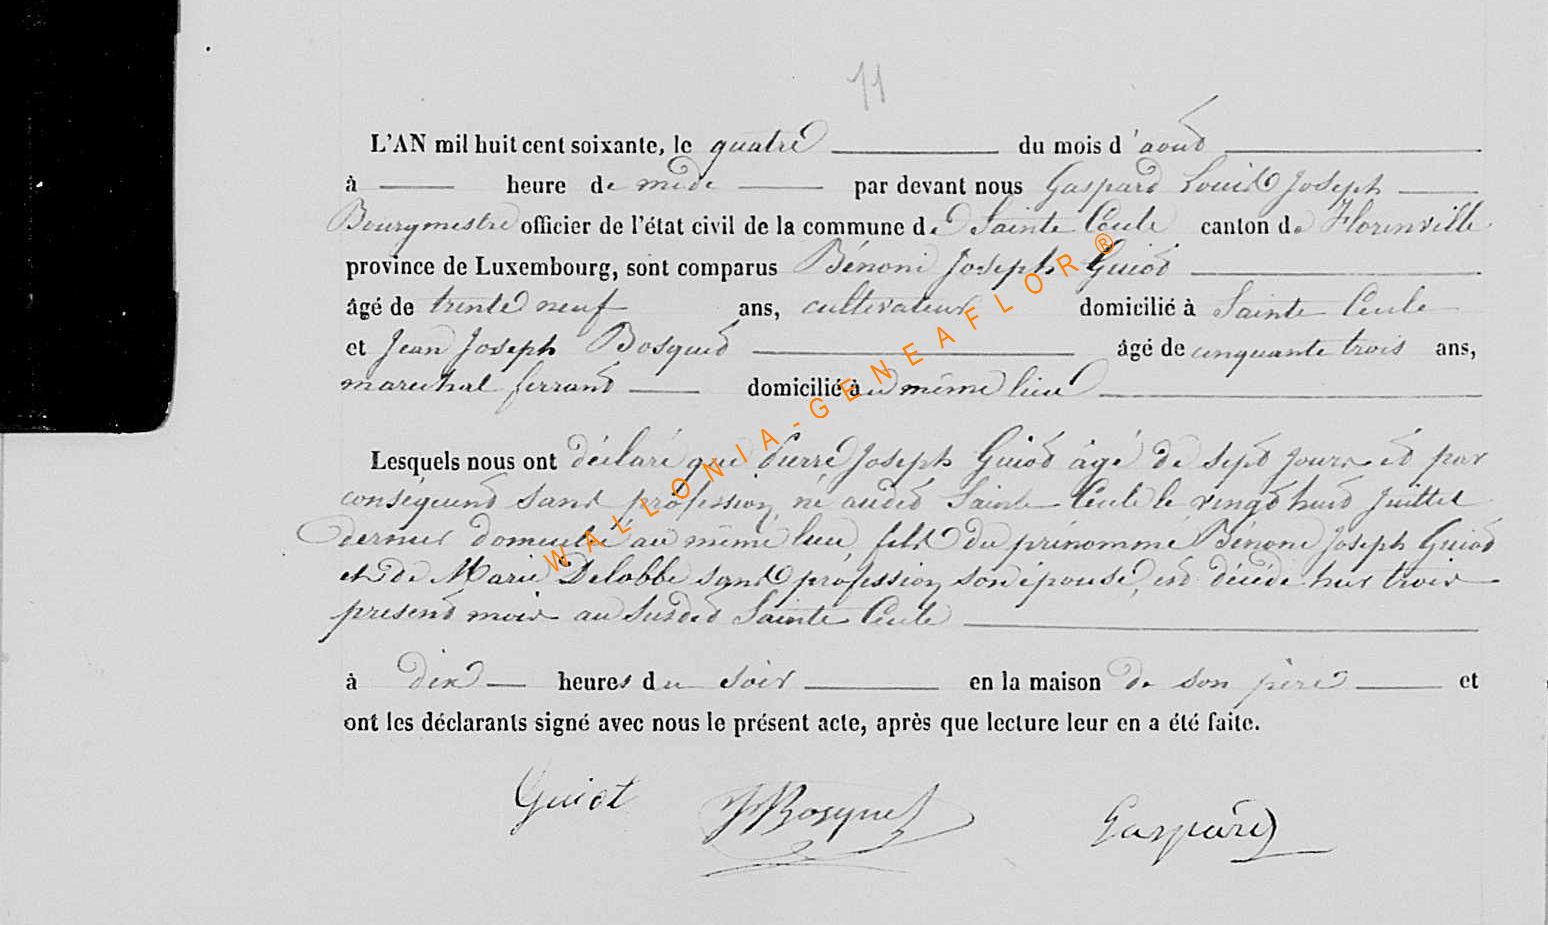 11
L'AN mil huit cent soixante, le quatre du mois d'aout
à heure de midi par devant nous Gaspard Louis Joseph
Bourgmestre officier de l'état civil de la commune de Sainte Cecile canton de Florenville
province de Luxembourg, sont comparus Bénoni Joseph Guiot
âgé de trente neuf ans, cultivateur domicilié à Sainte Cecile
et Jean Joseph Bosquet âgé de cinquante trois ans,
marechal ferrant domicilié à u même lieu
Lesquels nous ont déclaré que Pierre Joseph Guiot âgé de sept jours et par
conséquent sans profession, né audit Sainte Cecile le vingt huit juillet
dernier domicilié au même lieu, fils du prénommé Bénoni Joseph Guiot
et de Marie Delobbe sans profession son épouse, est décédé hier trois
present mois au susdit Sainte Cecile
à dix heures du soir en la maison de son père et
ont les déclarants signé avec nous le présent acte, après que lecture leur en a été faite.
Guiot JJBosquet Gaspard
WALLONIA-GENEAFLOR®